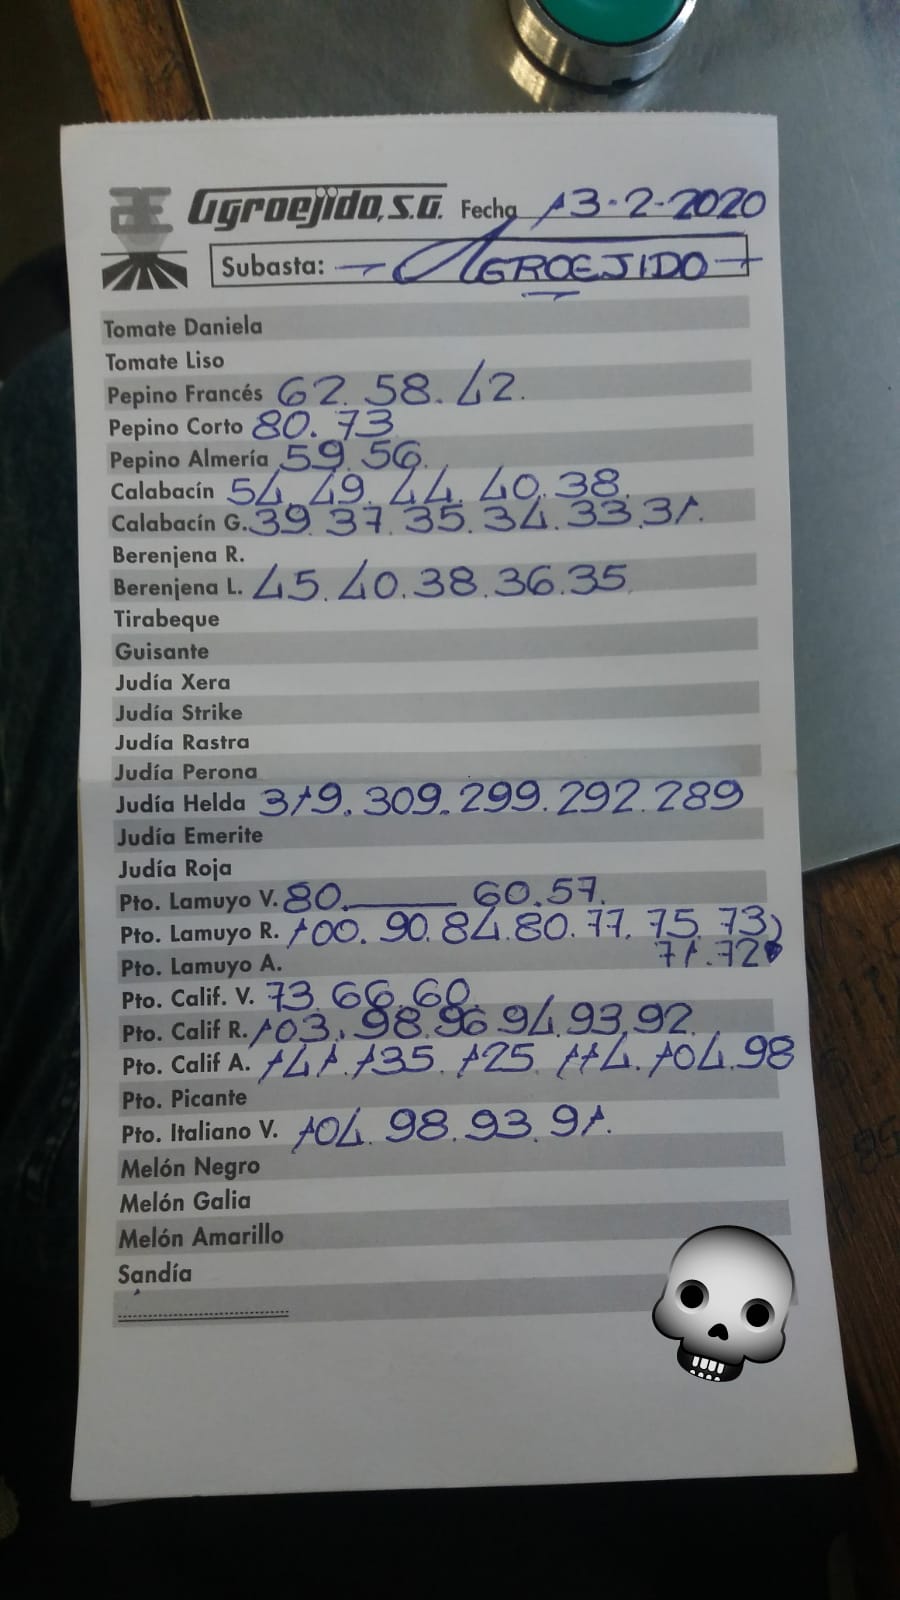 Agroejido, S.A. Fecha 13-2-2020
Subasta: — AGROEJIDO —
Tomate Daniela
Tomate Liso
Pepino Francés 62. 58. 42.
Pepino Corto 80. 73
Pepino Almería 59. 56.
Calabacín 54. 49. 44. 40. 38.
Calabacín G. 39. 37. 35. 34. 33. 31.
Berenjena R.
Berenjena L. 45. 40. 38. 36. 35.
Tirabeque
Guisante
Judía Xera
Judía Strike
Judía Rastra
Judía Perona
Judía Helda 319. 309. 299. 292. 289
Judía Emerite
Judía Roja
Pto. Lamuyo V. 80. ______ 60. 57.
Pto. Lamuyo R. 100. 90. 84. 80. 77. 75. 73
71. 72
Pto. Lamuyo A.
Pto. Calif. V. 73. 66. 60.
Pto. Calif R. 103. 98. 96 94. 93. 92.
Pto. Calif A. 141. 135. 125. 114. 104. 98
Pto. Picante
Pto. Italiano V. 104. 98. 93. 91.
Melón Negro
Melón Galia
Melón Amarillo
Sandía